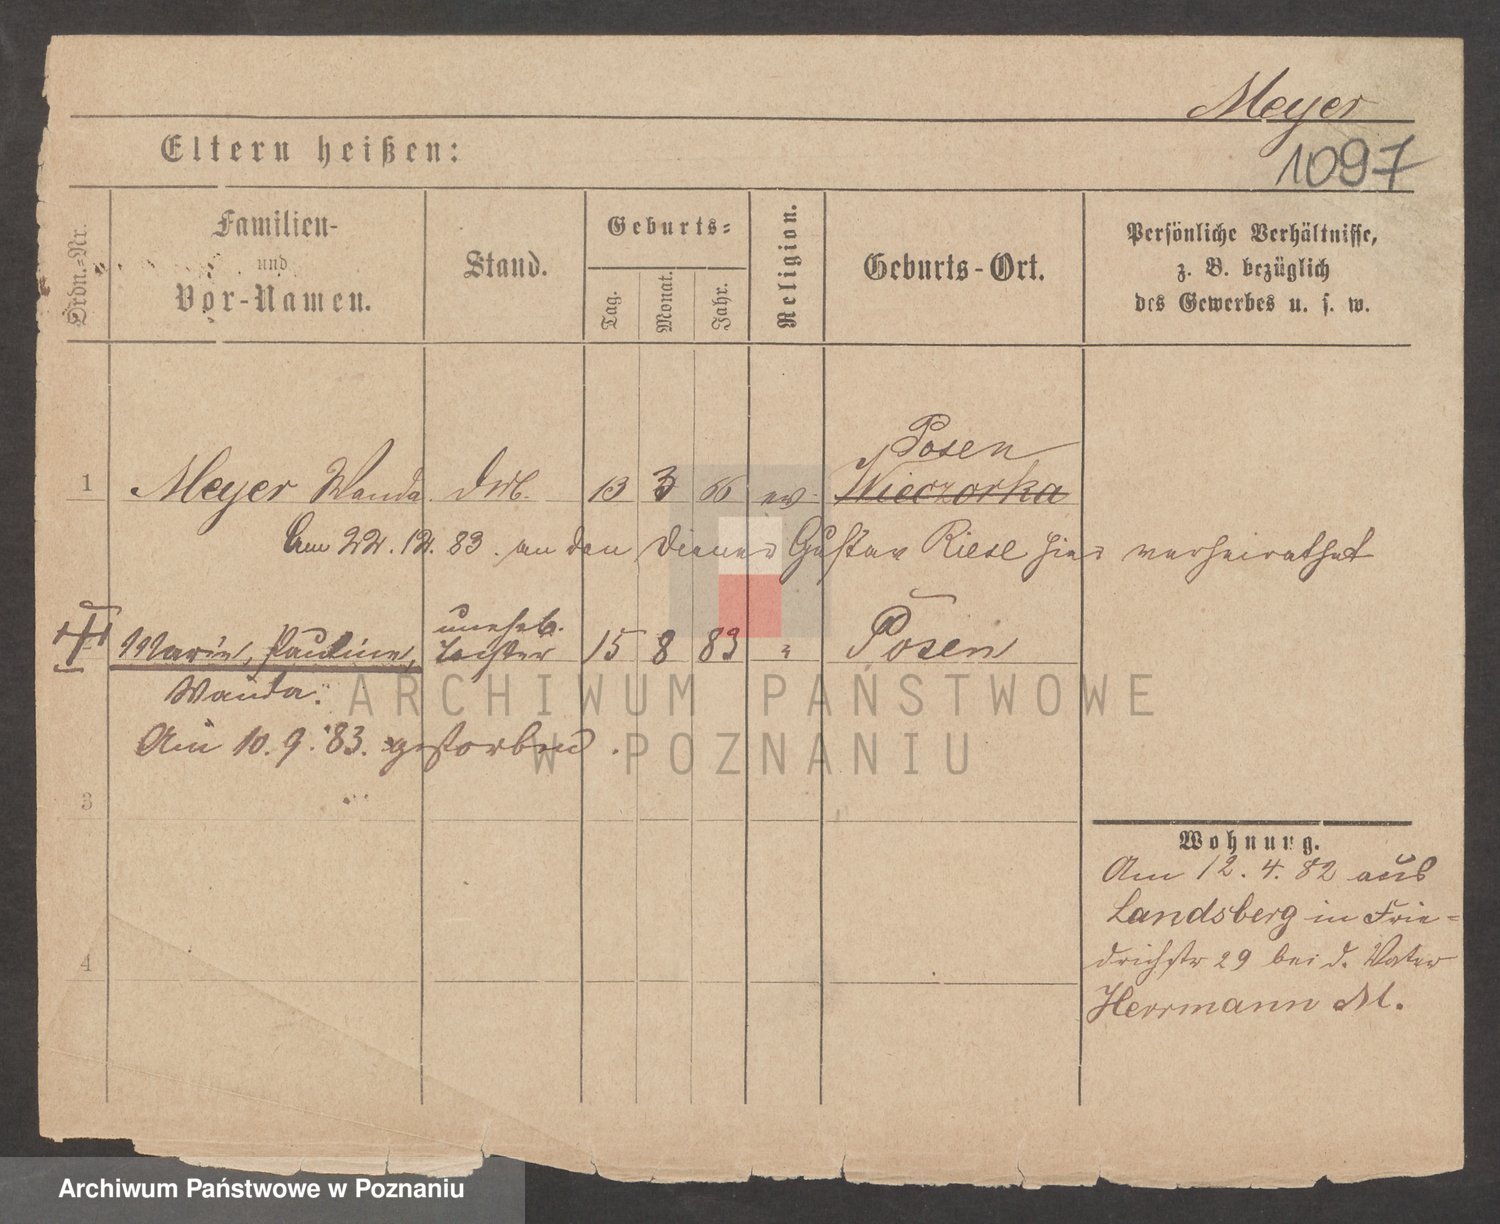 Meyer
1097
Eltern heißen:
Ordn.-Nr.
Familien-
und
Vor-Namen.
Stand.
Geburts-
Tag.
Monat.
Jahr.
Religion.
Geburts-Ort.
Persönliche Verhältnisse,
z. B. bezüglich
des Gewerbes u. s. w.
Posen
1 Meyer Wanda 13 3 66 ev. Wieczorka
Am 22.12.83. an den Diener Gustav Riese hier verheirathet
unehel.
Marie, Pauline, Tochter 15 8 83 " Posen
Wanda.
Am 10.9.83. gestorben.
3
4
Wohnung.
Am 12.4.82 aus
Landsberg in Frie-
drichstr 29 bei d. Vater
Herrmann M.
ARCHIWUM PAŃSTWOWE
W POZNANIU
Archiwum Państwowe w Poznaniu